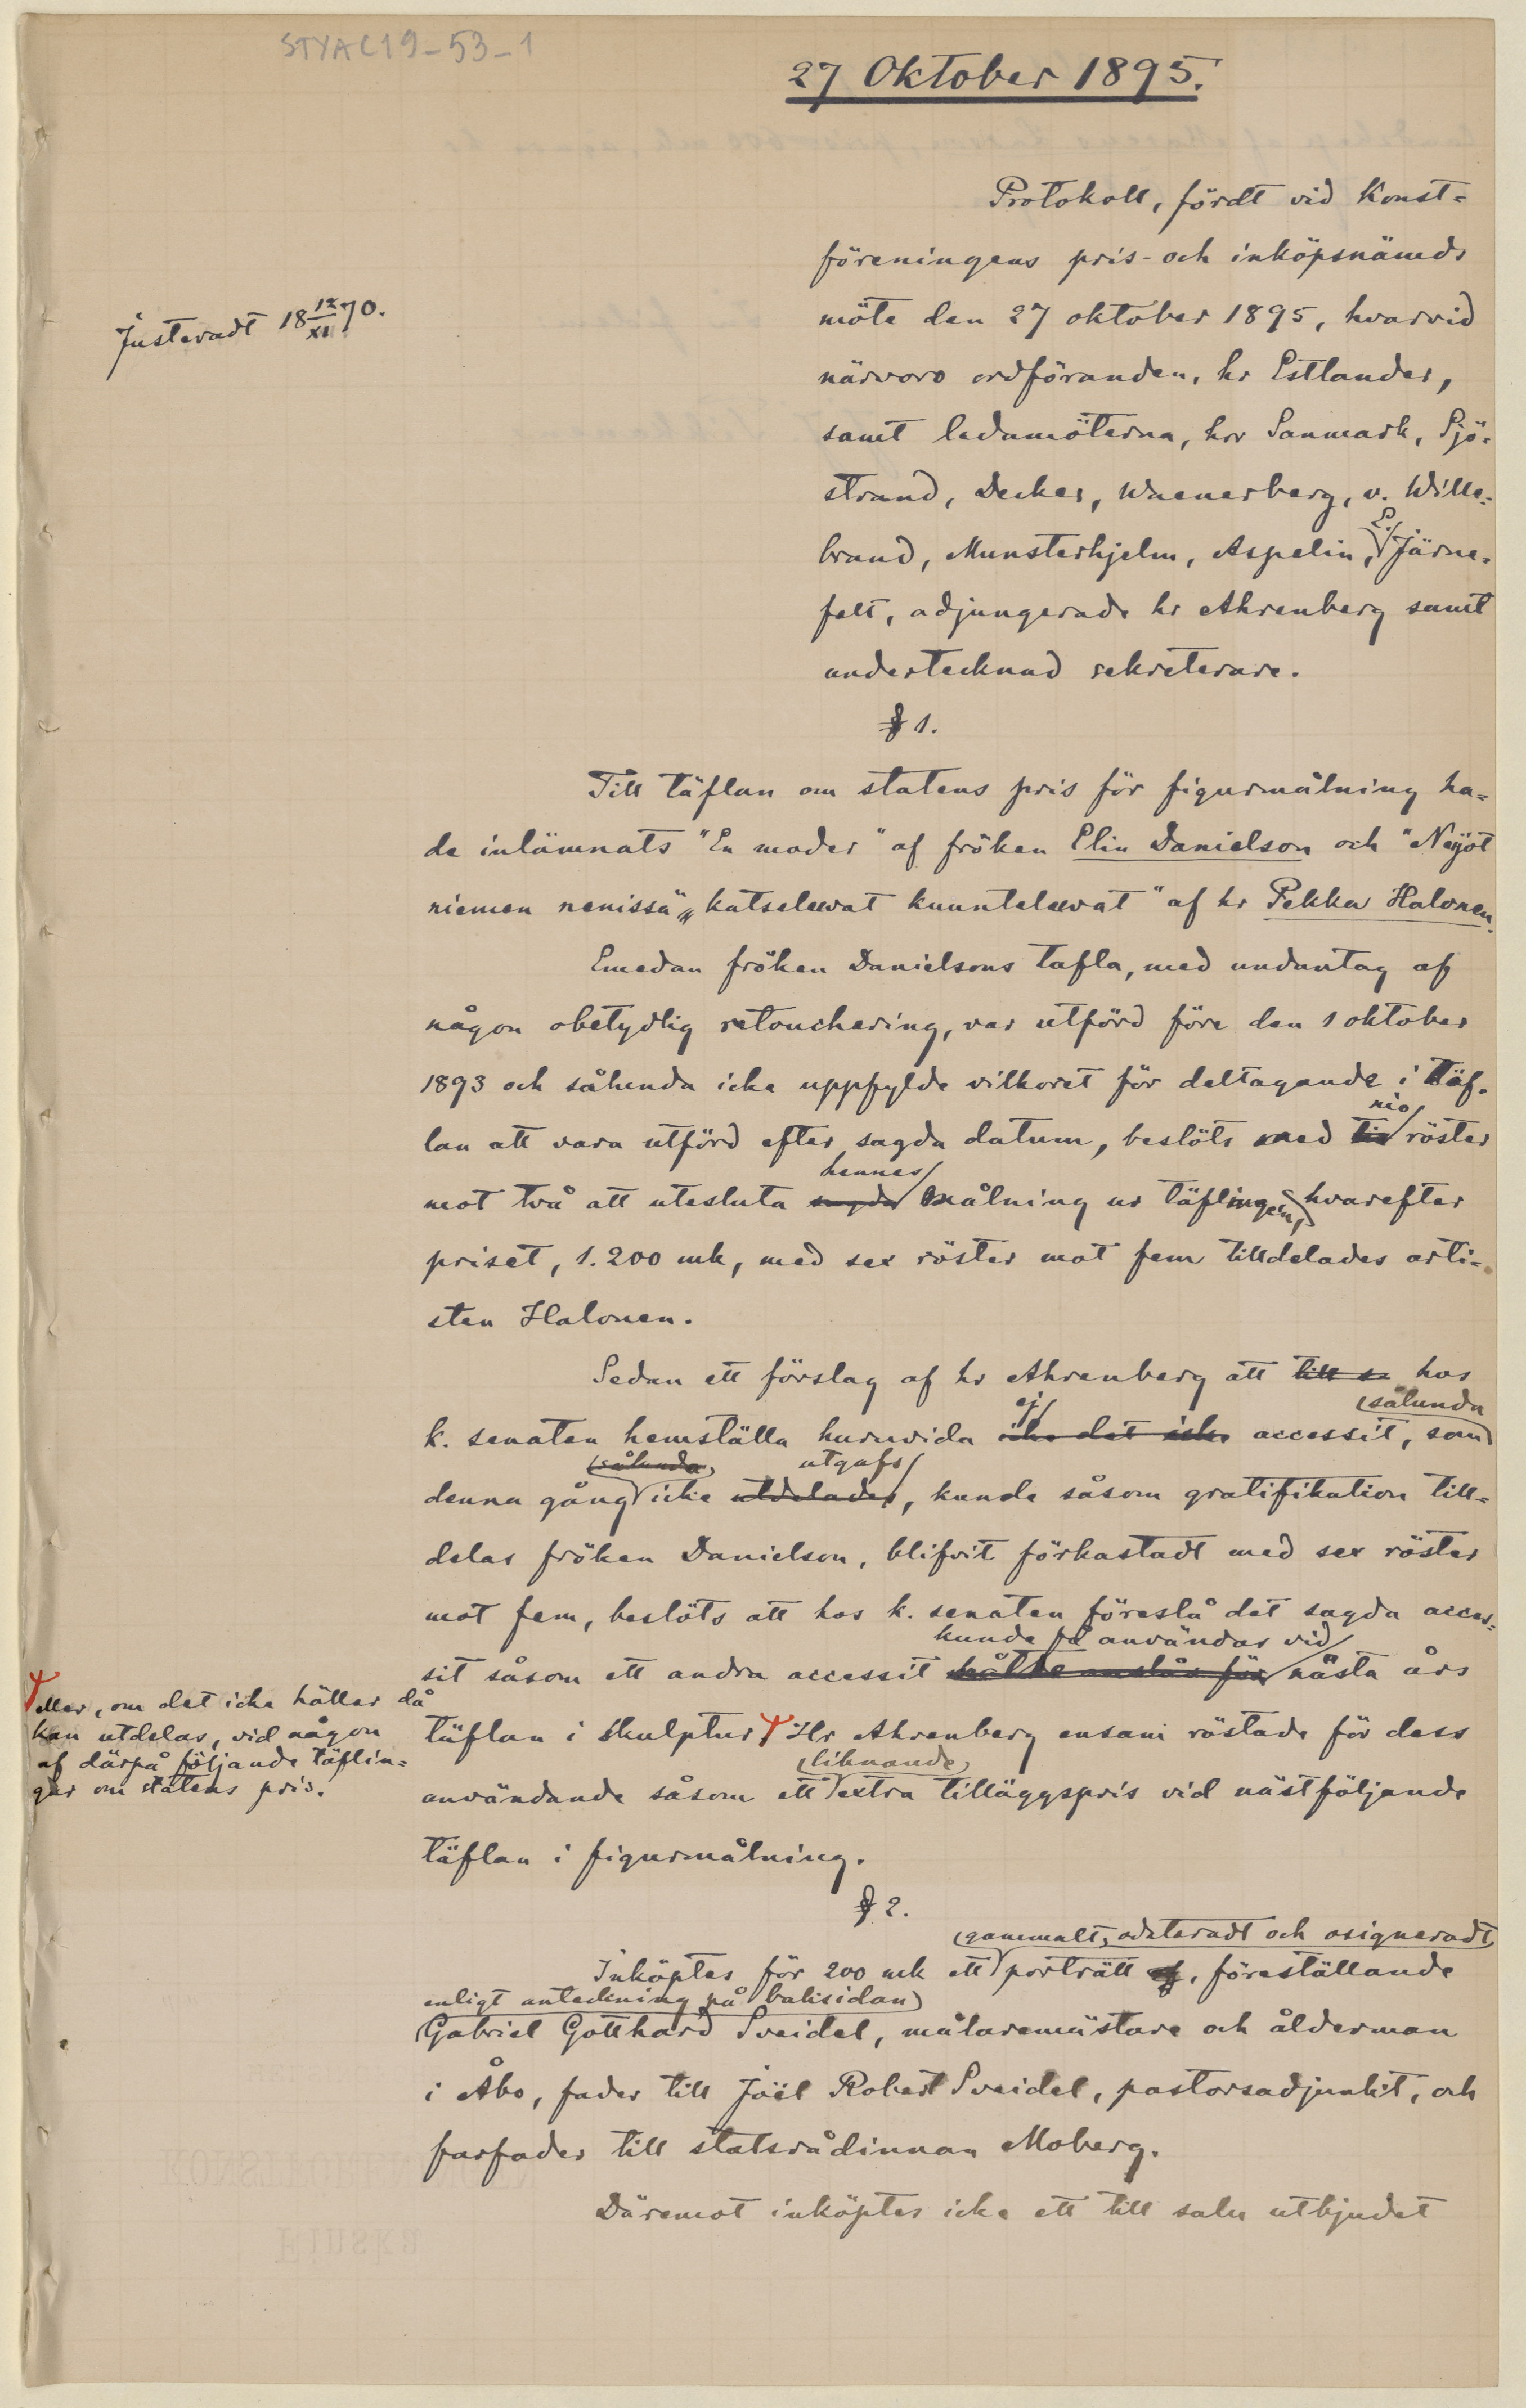 STYA C19-53-1
27 Oktober 1895.
Protokoll, fördt vid Konst-
föreningens pris- och inköpsnämds
möte den 27 oktober 1895, hvarvid
närvoro ordföranden, hr Estlander,
samt ledamöterna, hrr Sanmark, Sjö-
strand, Decker, Waenerberg, v. Wille-
brand, Munsterhjelm, Aspelin, E. Järne-
felt, adjungerade hr Ahrenberg samt
undertecknad sekreterare.
Justeradt 18 12/XII 70.
§ 1.
Till täflan om statens pris för figurmålning ha-
de inlämnats "En moder" af fröken Elin Danielson och "Neijöt
niemen nenissä „ katselewat kuuntelewat" af hr Pekka Halonen.
Emedan fröken Danielsons tafla, med undantag af
någon obetydlig retouchering, var utförd före den 1 oktober
1893 och såhunda icke uppfylde vilkoret för deltagande i täf-
lan att vara utförd efter sagda datum, beslöts med tio nio röster
mot två att utesluta sagda hennes målning ur täflingen, hvarefter
priset, 1.200 mk, med sex röster mot fem tilldelades arti-
sten Halonen.
Sedan ett förslag af hr Ahrenberg att till se hos
k. senaten hemställa huruvida icke det icke ej accessit, som sålunda
denna gång sålunda icke utdelades utgafs, kunde såsom gratifikation till-
delas fröken Danielson, blifvit förkastadt med sex röster
mot fem, beslöts att hos k. senaten föreslå det sagda acces-
sit såsom ett andra accessit måtte anslås för kunde få användas vid nästa års
täflan i skulptur Hr Ahrenberg ensam röstade för dess
användande såsom ett liknande extra tilläggspris vid nästföljande
täflan i figurmålning.
eller, om det icke håller då
kan utdelas, vid någon
af därpå följande täflin-
gar om statens pris.
§ 2.
Inköptes för 200 mk ett gammalt, odateradt och osigneradt porträtt af, föreställande
enligt anteckning på baksidan
Gabriel Gotthard Sveidel, målaremästare och ålderman
i Åbo, fader till Joël Robert Sveidel, pastorsadjunkt, och
farfader till statsrådinnan Moberg.
Däremot inköptes icke ett till salu utbjudet